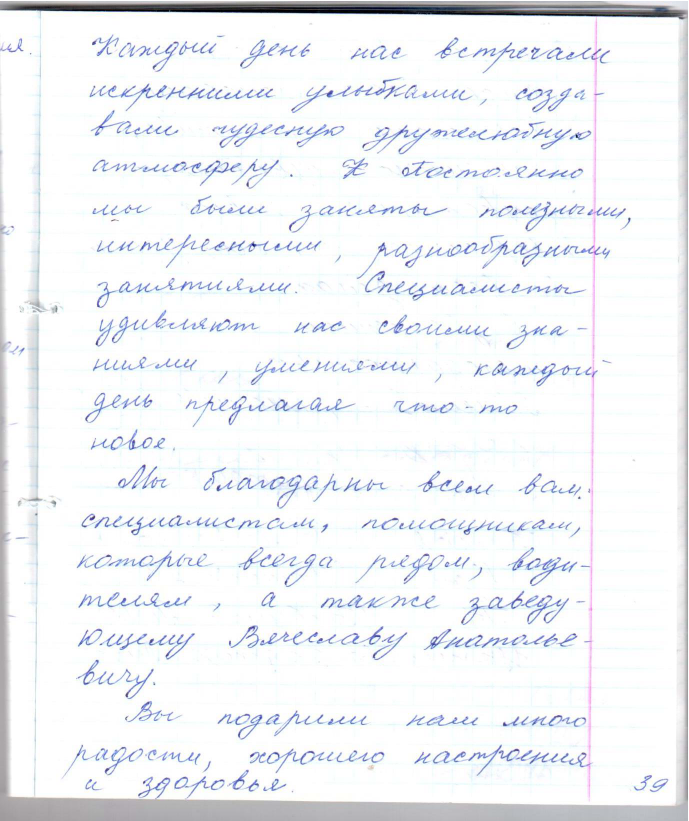 Каждый день нас встречали
искренними улыбками, созда-
вали чудесную дружелюбную
атмосферу. Постоянно
мы были заняты полезными,
интересными, разнообразными
занятиями. Специалисты
удивляют нас своими зна-
ниями, умениями, каждый
день предлагая что-то
новое.
Мы благодарны всем вам:
специалистам, помощникам,
которые всегда рядом, води-
телям, а также заведу-
ющему Вячеславу Анатолье-
вичу.
Вы подарили нам много
радости, хорошего настроения
и здоровья.
39